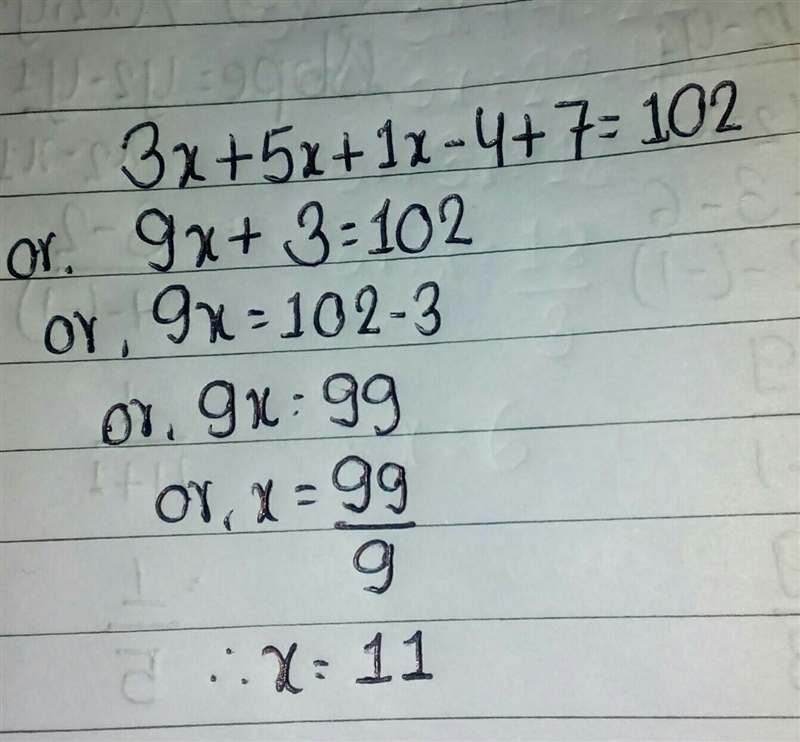 3x+5x+1x-4+7=102
or. 9x+3=102
or, 9x=102-3
or, 9x=99
or, x=99/9
∴x=11